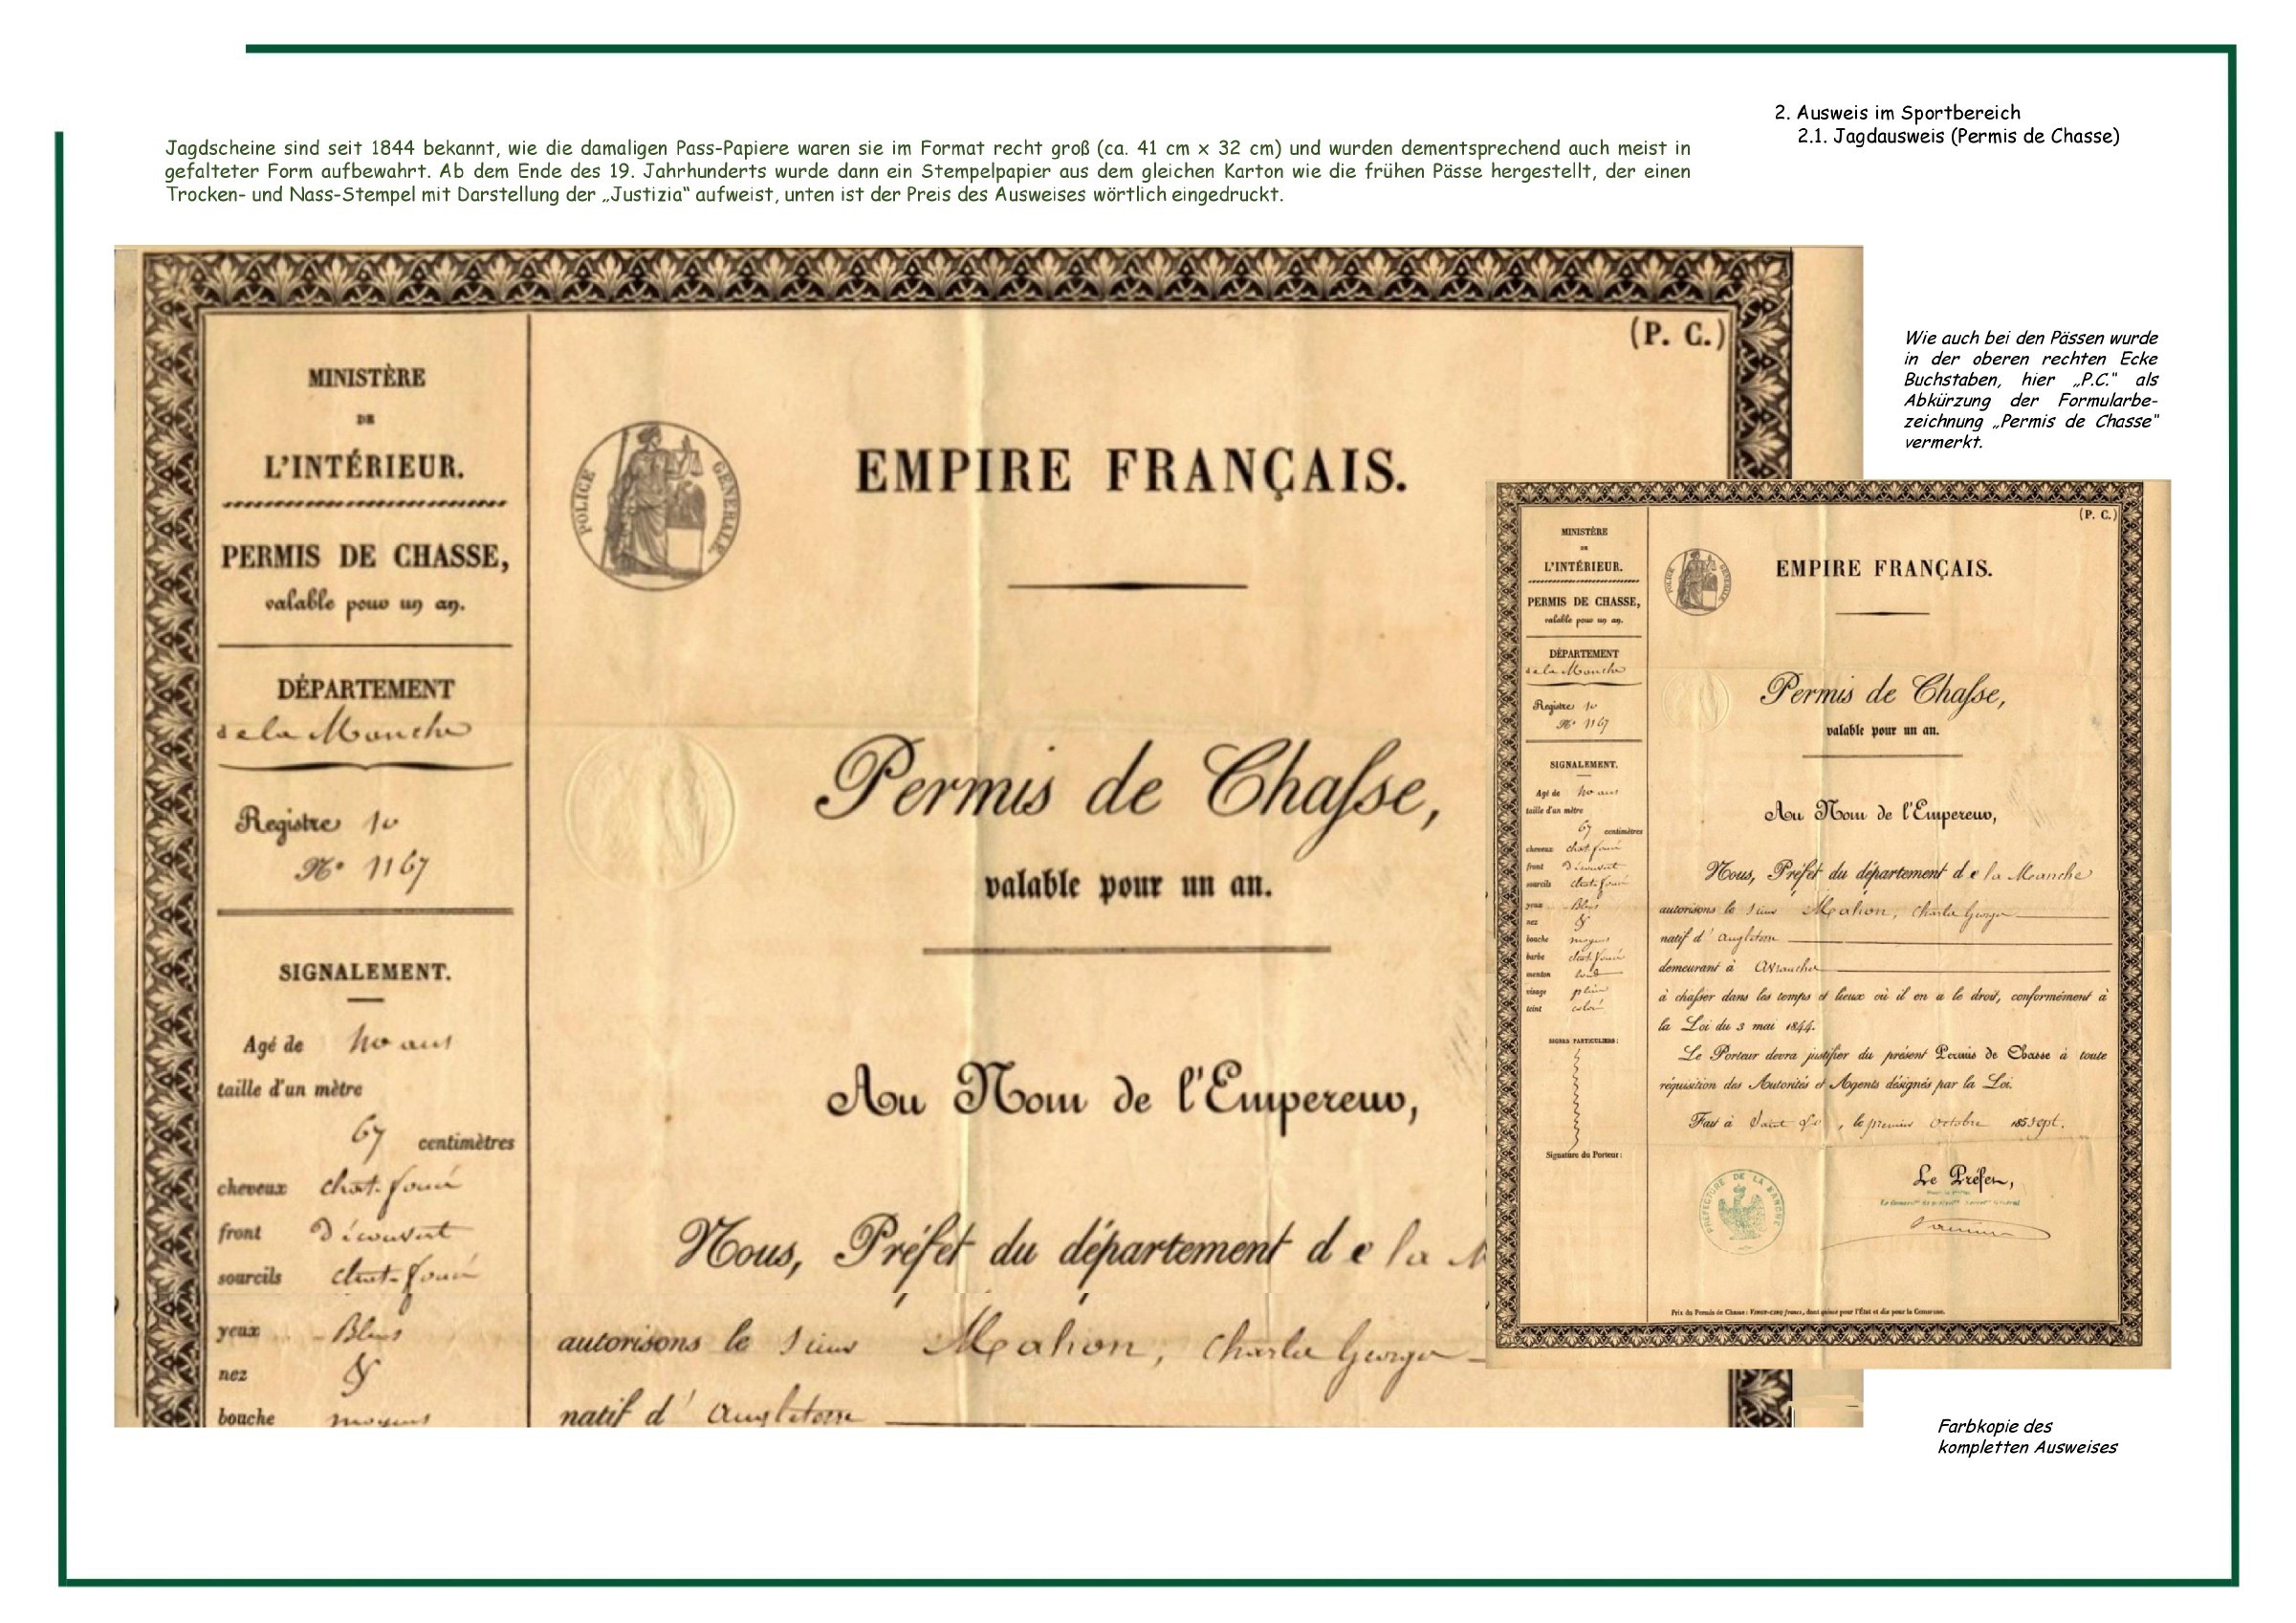 2. Ausweis im Sportbereich
2.1. Jagdausweis (Permis de Chasse)
Jagdscheine sind seit 1844 bekannt, wie die damaligen Pass-Papiere waren sie im Format recht groß (ca. 41 cm x 32 cm) und wurden dementsprechend auch meist in
gefalteter Form aufbewahrt. Ab dem Ende des 19. Jahrhunderts wurde dann ein Stempelpapier aus dem gleichen Karton wie die frühen Pässe hergestellt, der einen
Trocken- und Nass-Stempel mit Darstellung der „Justizia“ aufweist, unten ist der Preis des Ausweises wörtlich eingedruckt.
MINISTÈRE
DE
L'INTÉRIEUR.
PERMIS DE CHASSE,
valable pour un an.
DÉPARTEMENT
de la Manche
Registre 10
N° 1167
SIGNALEMENT.
Agé de 40 ans
taille d'un mètre
67 centimètres
cheveux chat. foncé
front découvert
sourcils chat. foncé
yeux Bleus
nez
bouche moyenne
(P. C.)
POLICE GÉNÉRALE
EMPIRE FRANÇAIS.
Permis de Chasse,
valable pour un an.
Au Nom de l'Empereur,
Nous, Préfet du département de la M
autorisons le Sieur Mahon, Charles George
natif d'Angleterre
Wie auch bei den Pässen wurde
in der oberen rechten Ecke
Buchstaben, hier „P.C.“ als
Abkürzung der Formularbe-
zeichnung „Permis de Chasse“
vermerkt.
MINISTÈRE
DE
L'INTÉRIEUR.
PERMIS DE CHASSE,
valable pour un an.
DÉPARTEMENT
de la Manche
Registre 10
N° 1167
SIGNALEMENT.
Agé de 40 ans
taille d'un mètre
67 centimètres
cheveux chat. foncé
front découvert
sourcils chat. foncé
yeux Bleus
nez
bouche moyenne
barbe chat. foncé
menton rond
visage plein
teint coloré
SIGNES PARTICULIERS :
Signature du Porteur :
(P. C.)
POLICE GÉNÉRALE
EMPIRE FRANÇAIS.
Permis de Chasse,
valable pour un an.
Au Nom de l'Empereur,
Nous, Préfet du département de la Manche
autorisons le Sieur Mahon, Charles George
natif d'Angleterre
demeurant à Avranches
à chasser dans les temps et lieux où il en a le droit, conformément à
la Loi du 3 mai 1844.
Le Porteur devra justifier du présent Permis de Chasse à toute
réquisition des Autorités et Agents désignés par la Loi.
Fait à Saint Lô, le premier Octobre 185 sept.
PRÉFECTURE DE LA MANCHE
Le Préfet,
Prix du Permis de Chasse : VINGT-CINQ francs, dont quinze pour l'État et dix pour la Commune.
Farbkopie des
kompletten Ausweises